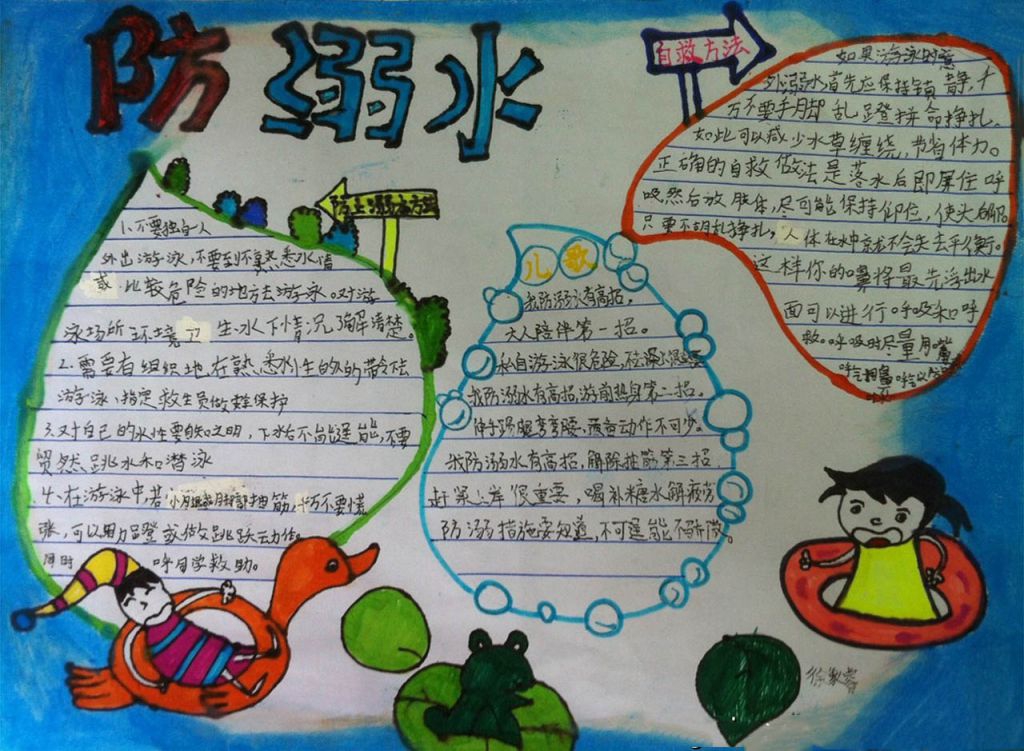 防溺水
防止溺水方法
1.不要独自一人
外出游泳,不要到不熟悉水情
或比较危险的地方去游泳。对游
泳场所环境 生、水下情况了解清楚。
2.需要有组织地,在熟悉水性的人的带领下去
游泳,指定救生员做安全保护
3.对自己的水性要自知之明,下水后不能逞能,不要
贸然跳水和潜泳
4.在游泳中若小腿或脚部抽筋,千万不要慌
张,可以用力蹬或做跳跃动作。
同时 呼同学救助。
儿歌
我防溺水有高招,
大人陪伴第一招。
私自游泳很危险,
我防溺水有高招,游前热身第二招。
伸手踢腿弯弯腰,预备动作不可少。
我防溺水有高招,解除抽筋第三招,
赶紧上岸很重要,喝补糖水解疲劳
防溺措施要知道,不可逞能不骄傲。
自救方法
如果游泳时意
外溺水首先应保持镇静,千
万不要手脚乱蹬拼命挣扎。
如此可以减少水草缠绕,节省体力。
正确的自救做法是落水后即屏住呼
吸,然后放肢体,尽可能保持仰位,使头后仰。
只要不胡乱挣扎,人体在水中就不会失去平衡。
这样你的口鼻将最先浮出水
面可以进行呼吸和呼
救。呼吸时尽量用嘴